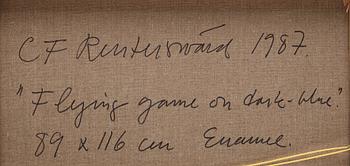 CF Reuterswärd 1987.
"Flying game on dark-blue".
89 x 116 cm Enamel.